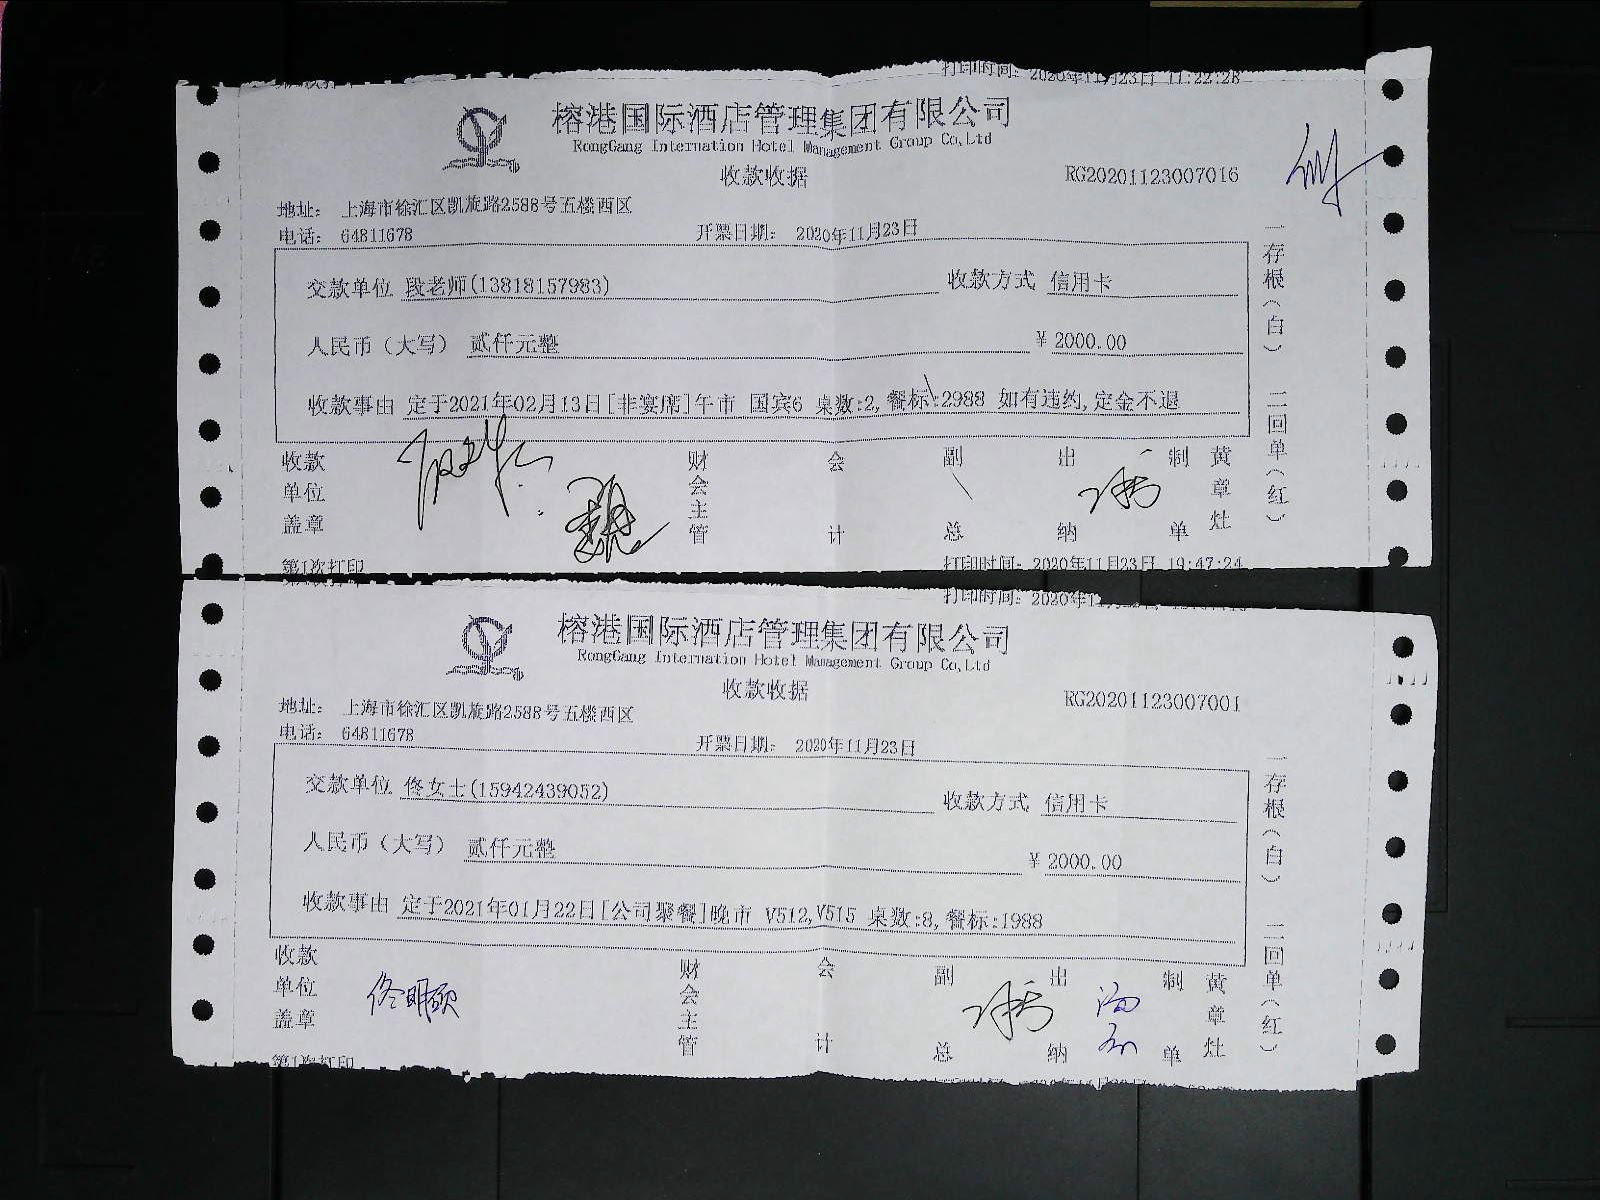 打印时间: 2020年11月23日 11:22:28
榕港国际酒店管理集团有限公司
RongGang Internation Hotel Management Group Co,Ltd
收款收据
RG20201123007016
地址: 上海市徐汇区凯旋路2588号五楼西区
电话: 64811678
开票日期: 2020年11月23日
交款单位 段老师(13818157983) 收款方式 信用卡
人民币(大写) 贰仟元整 ¥ 2000.00
收款事由 定于2021年02月13日[非宴席]午市 国宾6 桌数:2,餐标:2988 如有违约,定金不退
收款单位盖章 财会主管 会计 副总 出纳 制单 黄章灶
一存根(白) 二回单(红)
第1次打印
打印时间: 2020年11月23日 19:47:24
打印时间: 2020年
榕港国际酒店管理集团有限公司
RongGang Internation Hotel Management Group Co,Ltd
收款收据
RG20201123007001
地址: 上海市徐汇区凯旋路2588号五楼西区
电话: 64811678
开票日期: 2020年11月23日
交款单位 佟女士(15942439052) 收款方式 信用卡
人民币(大写) 贰仟元整 ¥ 2000.00
收款事由 定于2021年01月22日[公司聚餐]晚市 V512,V515 桌数:8,餐标:1988
收款单位盖章 财会主管 会计 副总 出纳 制单 黄章灶
一存根(白) 二回单(红)
佟明颐
第1次打印